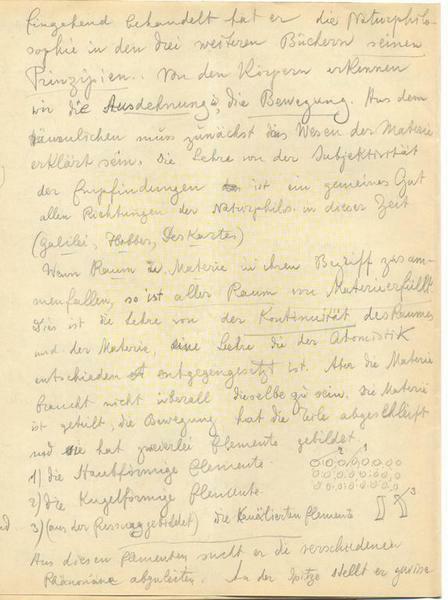 Eingehend behandelt hat er die Naturphilo-
sophie in den drei weiteren Büchern seinen
Prinzipien. Von den Körpern erkennen
wir die Ausdehnung, die Bewegung. Aus dem
räumlichen muss zunächst das Wesen der Materie
erklärt sein. Die Lehre von der Subjektivität
der Empfindungen ist ein gemeines Gut
allen Richtungen der Naturphilos. in dieser Zeit
(Galilei, Hobbes, Deskartes)
Wenn Raum u. Materie in ihren Begriff zusam-
menfallen, so ist aller Raum von Materie erfüllt.
Dies ist die Lehre von der Kontinuität des Raumes
und der Materie, eine Lehre die der Atomistik
entschieden entgegengesetzt ist. Aber die Materie
braucht nicht überall dieselbe zu sein. Die Materie
ist geteilt, die Bewegung hat die Teile abgeschleift
und sie hat zweierlei Elemente gebildet
1) die Staubförmige Elemente. 2 1
2) die Kugelförmige Elemente.
3) (aus der gebildet) die Kanälierten Elemente 3
Aus diesen Elementen sucht er die verschiedenen
Phänomäne abzuleiten. An der Spitze stellt er gewisse